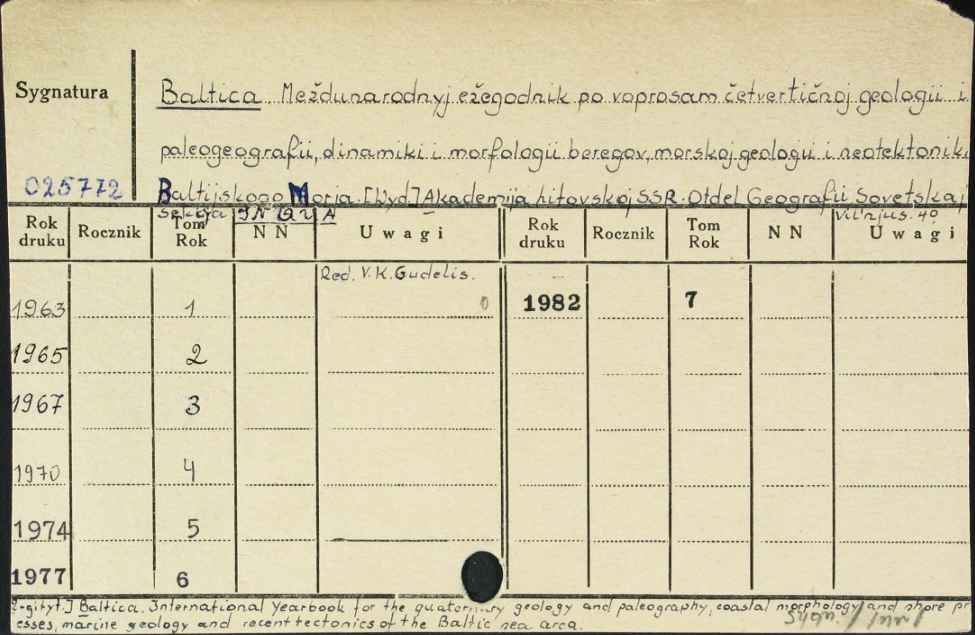 Sygnatura
Baltica Meždunarodnyj ežegodnik po voprosam četvertičnoj geologii i
paleogeografii, dinamiki i morfologii beregov, morskoj geologii i neotektoniki
025772
Baltijskogo Moria. [Wyd.] Akademija Litovskoj SSR. Otdel Geografii Sovetskaj
sekcija INQUA
Vil'njus. 4°
Rok druku Rocznik Tom Rok NN Uwagi Rok druku Rocznik Tom Rok NN Uwagi
Red. V. K. Gudelis.
1963 1 0 1982 7
1965 2
1967 3
1970 4
1974 5
1977 6
Baltica. International Yearbook for the quaternary geology and paleography, coastal morphology and shore pr
esses, marine geology and recent tectonics of the Baltic sea area.